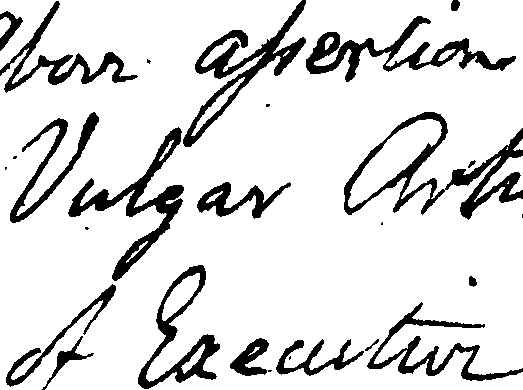 above assertion
Vulgar Arth
of Executive